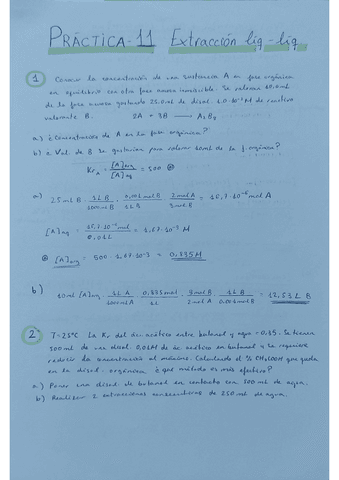 PRÁCTICA-11 Extracción liq-liq
1 Conocer la concentración de una sustancia A en fase orgánica
en equilibrio con otra fase acuosa inmiscible. Se valoran 10,0mL
de la fase acuosa gastando 25.0mL de disol. 1.0·10⁻³ M de reactivo
valorante B. 2A + 3B → A₂B₃
a) ¿Concentración de A en la fase orgánica?
b) ¿Vol. de B se gastarían para valorar 10mL de la f. orgánica?
K_{rA} = [A]org / [A]aq = 500
a) 25 mL B · 1L B / 1000mL B · 0,001 mol B / 1L B · 2mol A / 3mol B = 16,7·10⁻⁶ mol A
[A]aq = 16,7·10⁻⁶ mol / 0,01L = 1,67·10⁻³ M
[A]org = 500 · 1,67·10⁻³ = 0,835M
b) 10ml [A]org · 1L A / 1000mL A · 0,835mol / 1L · 3mol B / 2mol A · 1L B / 0.001mol B = 12,53 L B
2 T=25ºC La Kr del ác. acético entre butanol y agua = 0,45. Se tienen
500ml de una disol. 0,01M de ác acético en butanol y se requiere
reducir la concentración al máximo. Calculando el % CH₃COOH que queda
en la disol. orgánica ¿qué método es más efectivo?
a) Poner una disol. de butanol en contacto con 500 mL de agua.
b) Realizar 2 extracciones consecutivas de 250 mL de agua.